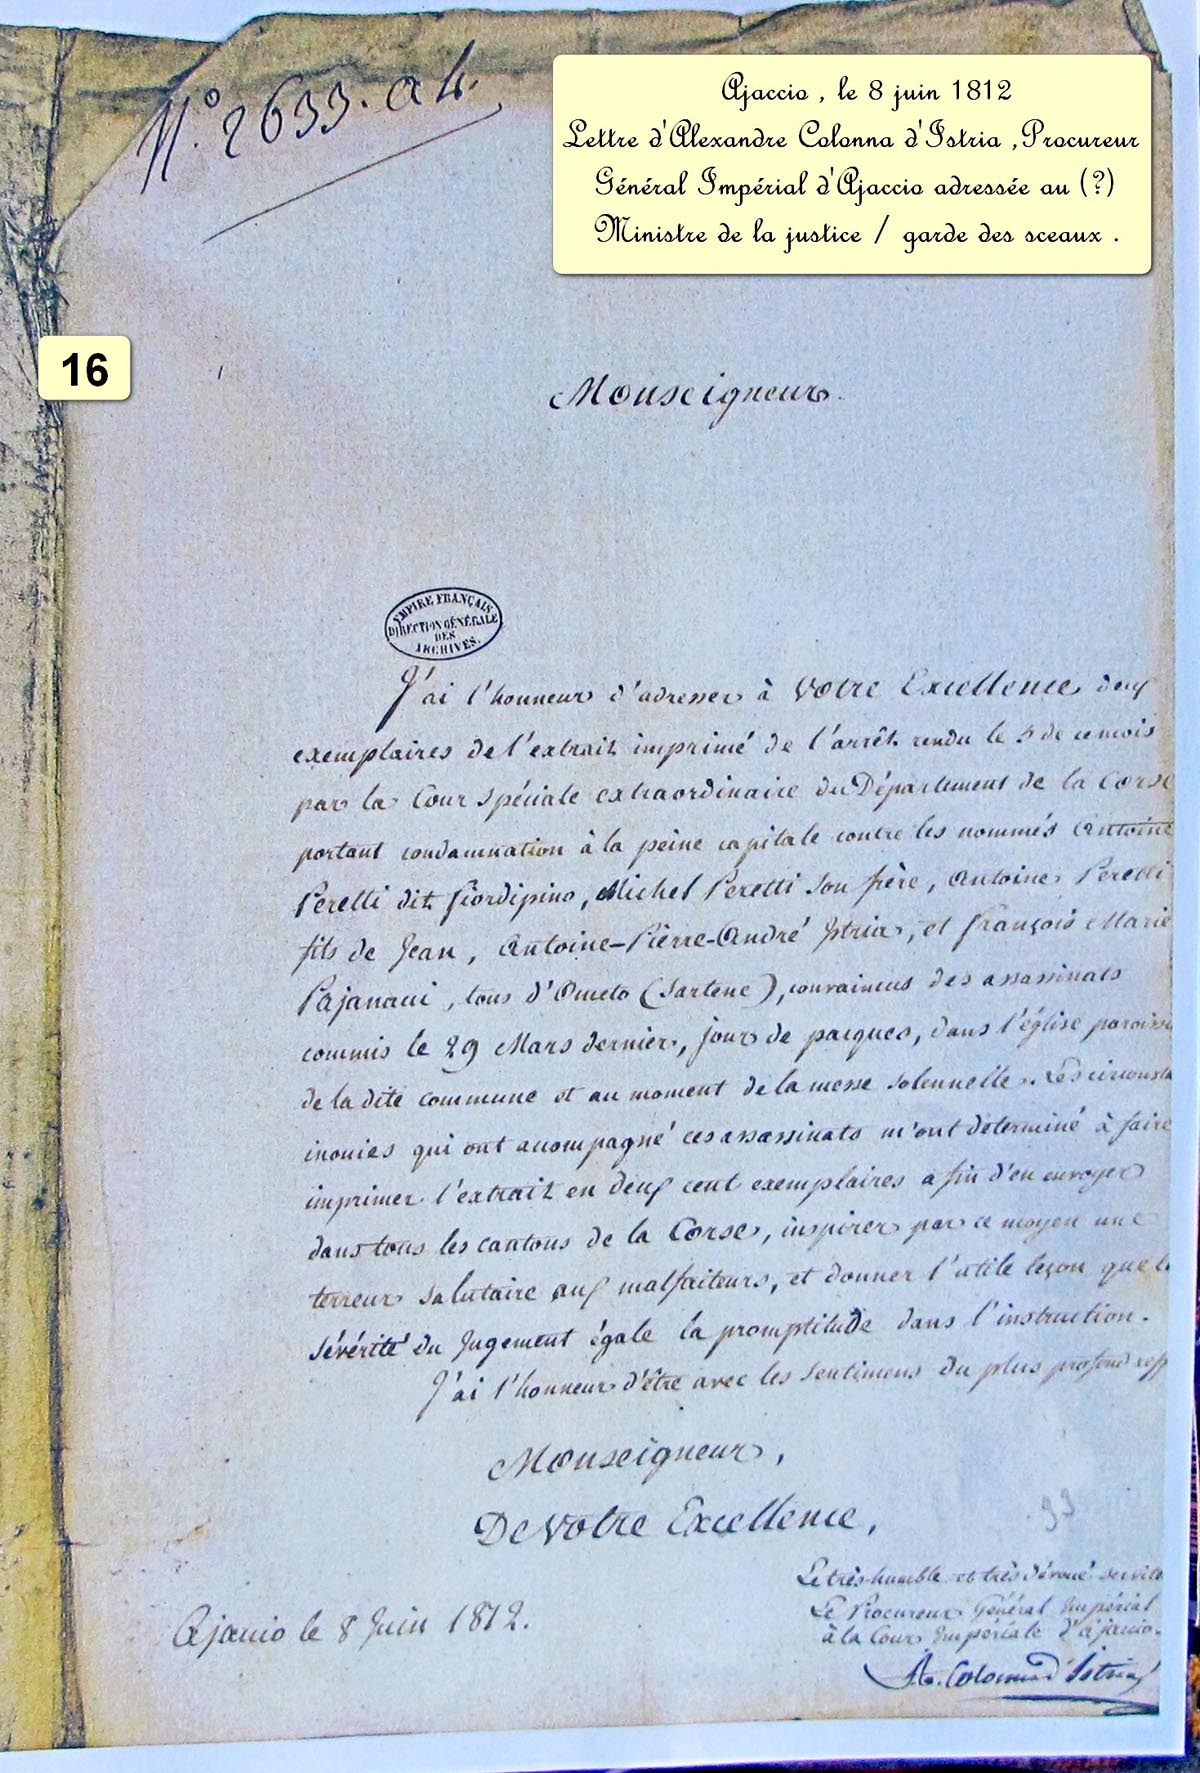 N.° 2633. a 4.
Ajaccio , le 8 juin 1812
Lettre d'Alexandre Colonna d'Istria ,Procureur
Général Impérial d'Ajaccio adressée au (?)
Ministre de la justice / garde des sceaux .
16
Monseigneur.
EMPIRE FRANÇAIS
DIRECTION GÉNÉRALE
DES
ARCHIVES.
J'ai l'honneur d'adresser à Votre Excellence deux
exemplaires de l'extrait imprimé de l'arrêt rendu le 5 de ce mois
par la Cour spéciale extraordinaire du Département de la Corse
portant condamnation à la peine capitale contre les nommés Antoine
Peretti dit fiordipino, Michel Peretti son frère, Antoine Peretti
fils de Jean, Antoine-Pierre-André Istria, et françois Marie
Pajanaci, tous d'Olmeto (Sartene), convaincus des assassinats
commis le 29 Mars dernier, jour de pacques, dans l'église paroiss
de la dite commune et au moment de la messe solennelle. Les circonsta
inouies qui ont accompagné ces assassinats m'ont déterminé à faire
imprimer l'extrait en deux cent exemplaires afin d'en envoyer
dans tous les cantons de la Corse, inspirer par ce moyen une
terreur salutaire aux malfaiteurs, et donner l'utile leçon que la
sévérité du Jugement égale la promptitude dans l'instruction.
J'ai l'honneur d'être avec les sentimens du plus profond resp
Monseigneur,
De Votre Excellence,
33
Le très humble et très dévoué servite
Le Procureur Général Impérial
à la Cour Impériale d'Ajaccio.
Ajaccio le 8 Juin 1812.
Colonna d'Istria